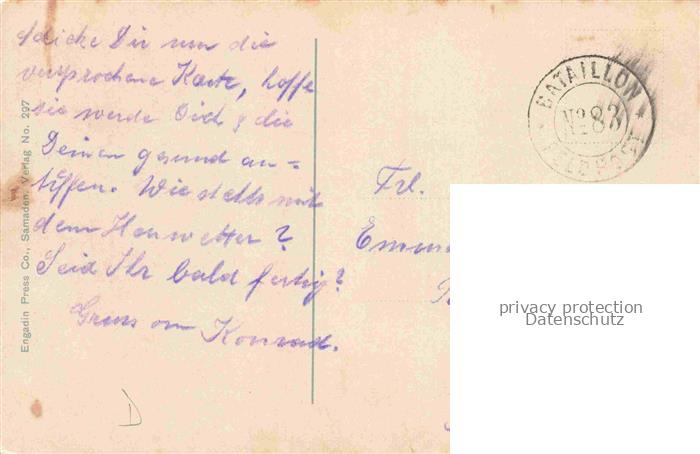 schicke Dir nun die
versprochene Karte, hoffe
sie werde Dich & die
Deinen gesund an=
treffen. Wie stehts mit
dem Heuwetter?
Seid Ihr bald fertig?
Gruss von Konrad.
Engadin Press Co., Samaden, Verlag No. 297
BATAILLON
No 83
FELDPOST
Frl.
privacy protection
Datenschutz
D